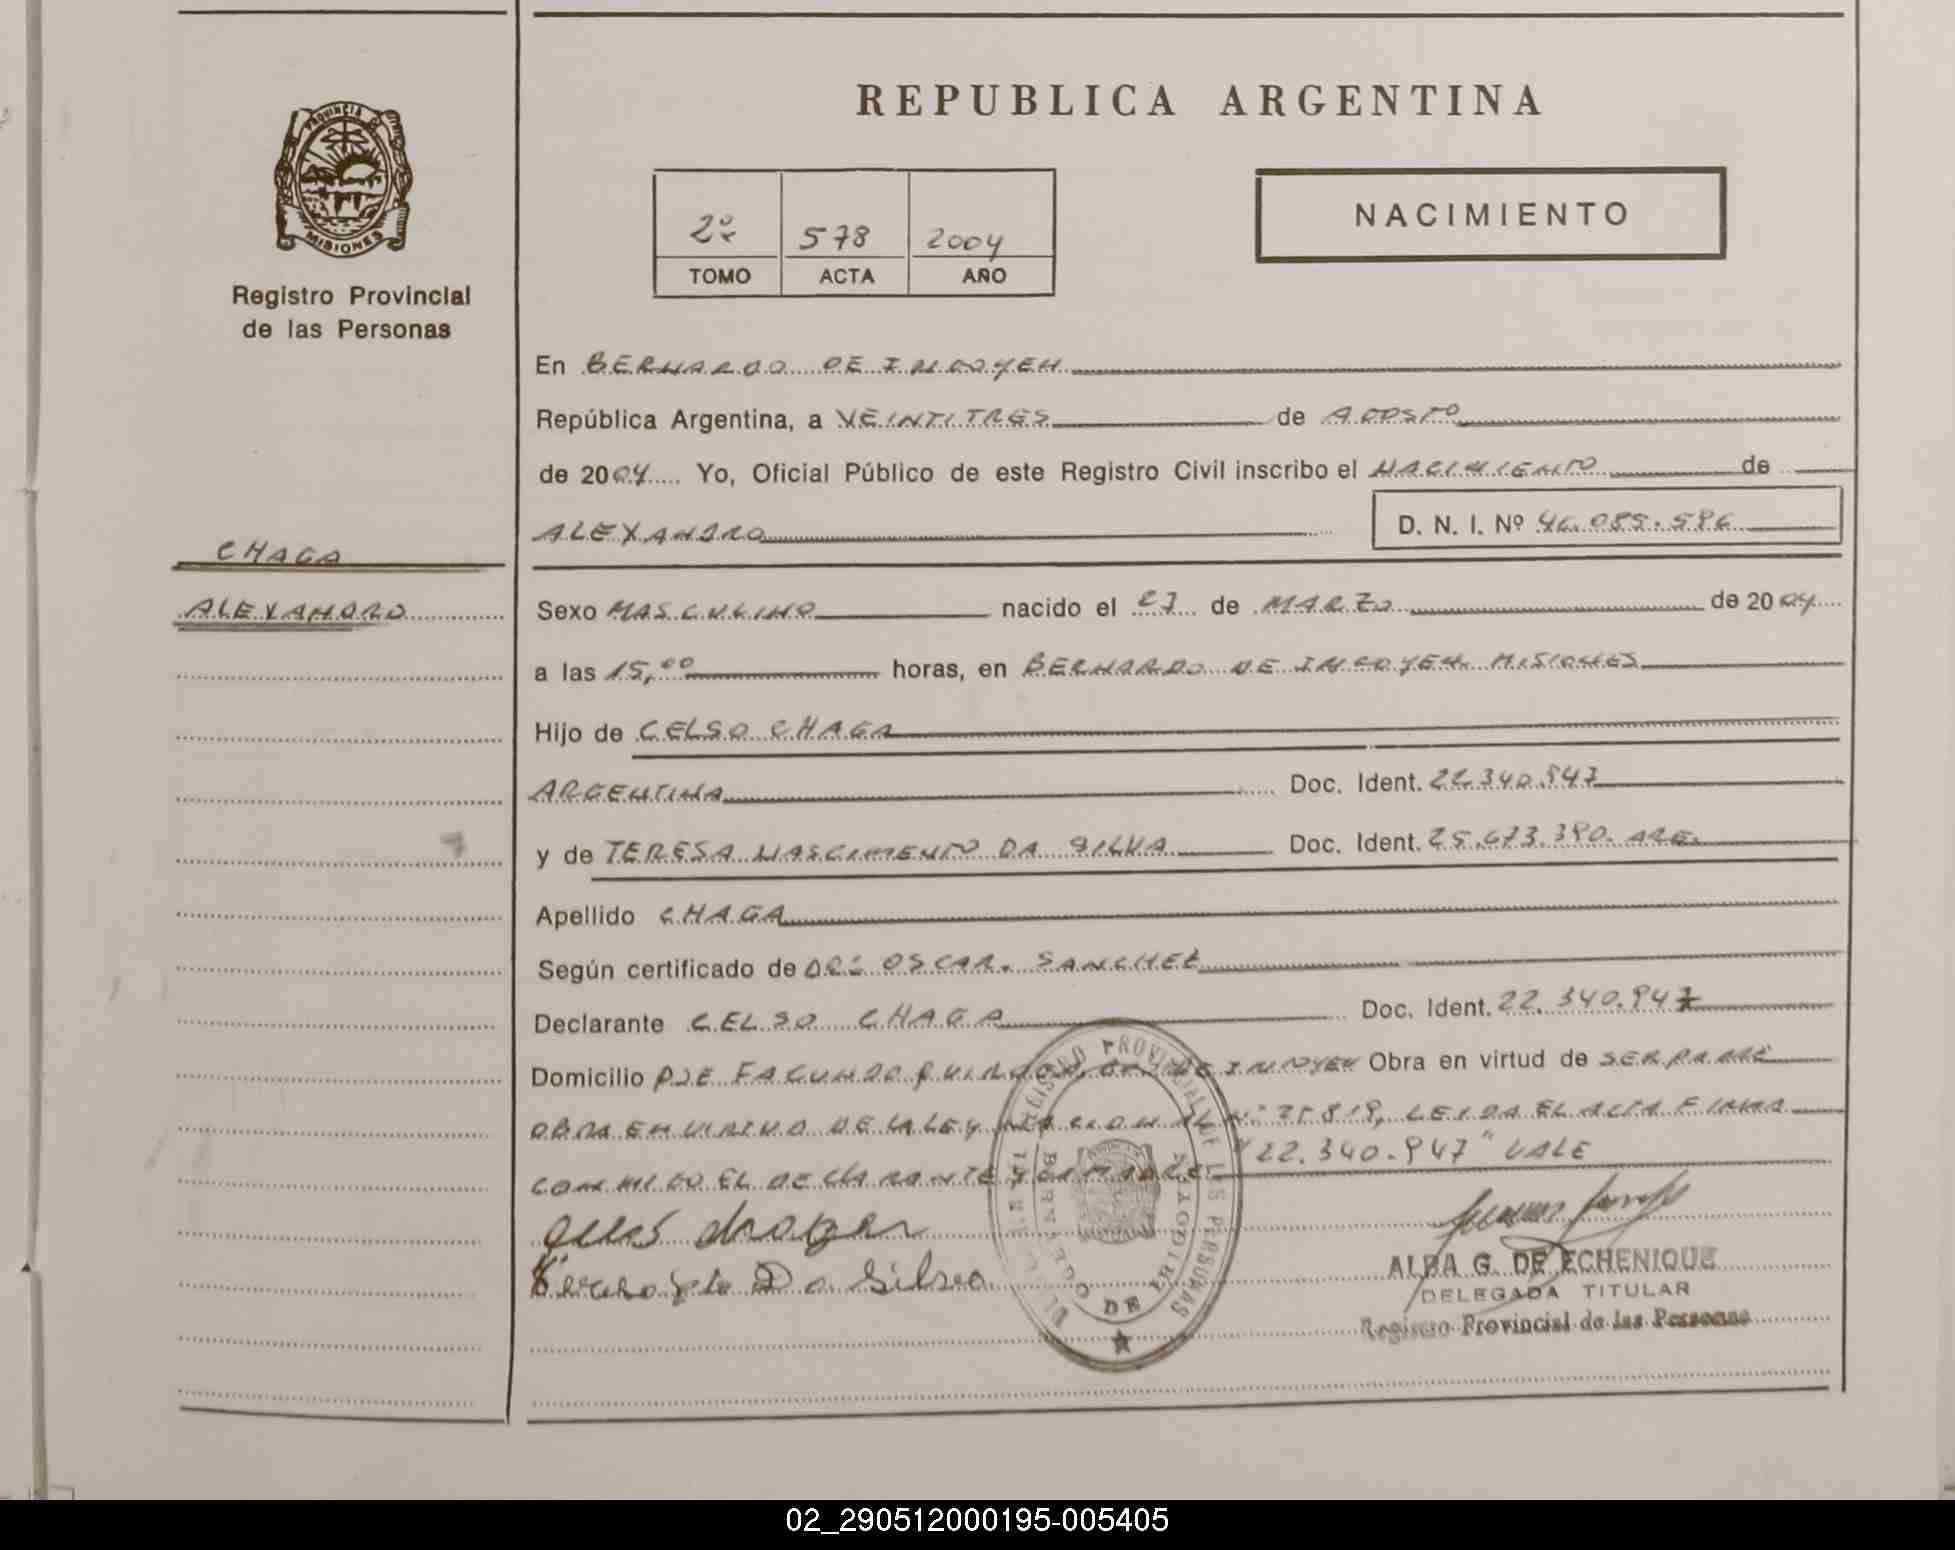 REPUBLICA ARGENTINA
PROVINCIA DE
MISIONES
Registro Provincial
de las Personas
2º 578 2004
TOMO ACTA AÑO
NACIMIENTO
En BERNARDO DE IRIGOYEN
República Argentina, a VEINTITRES de AGOSTO
de 2004 Yo, Oficial Público de este Registro Civil inscribo el NACIMIENTO de
ALEXANDRO D. N. I. Nº 46.085.596
CHAGA
ALEXANDRO
Sexo MASCULINO nacido el 27 de MARZO de 2004
a las 15,00 horas, en BERNARDO DE IRIGOYEN. MISIONES
Hijo de CELSO CHAGA
ARGENTINA Doc. Ident. 22.340.947
y de TERESA NASCIMENTO DA SILVA Doc. Ident. 25.673.390. ARG.
Apellido CHAGA
Según certificado de DR: OSCAR. SANCHEZ
Declarante CELSO CHAGA Doc. Ident. 22.340.947
Domicilio PJE FACUNDO QUIROGA, DE IRIGOYEN Obra en virtud de SER PADRE
OBRA EN VIRTUD DE LA LEY NACIONAL Nº 25.819, LEIDA EL ACTA FIRMA
CONMIGO EL DECLARANTE Y LA MADRE "22.340.947" VALE
Da Silva
REGISTRO PROVINCIAL DE LAS PERSONAS
BERNARDO DE IRIGOYEN
ALBA G. DE ECHENIQUE
DELEGADA TITULAR
Registro Provincial de las Personas
02_290512000195-005405